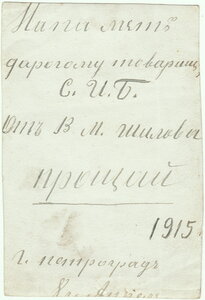 На память
дорогому товарищу
С. И. Б.
Отъ В М. Шилова
прощай
1915
г. петроградъ